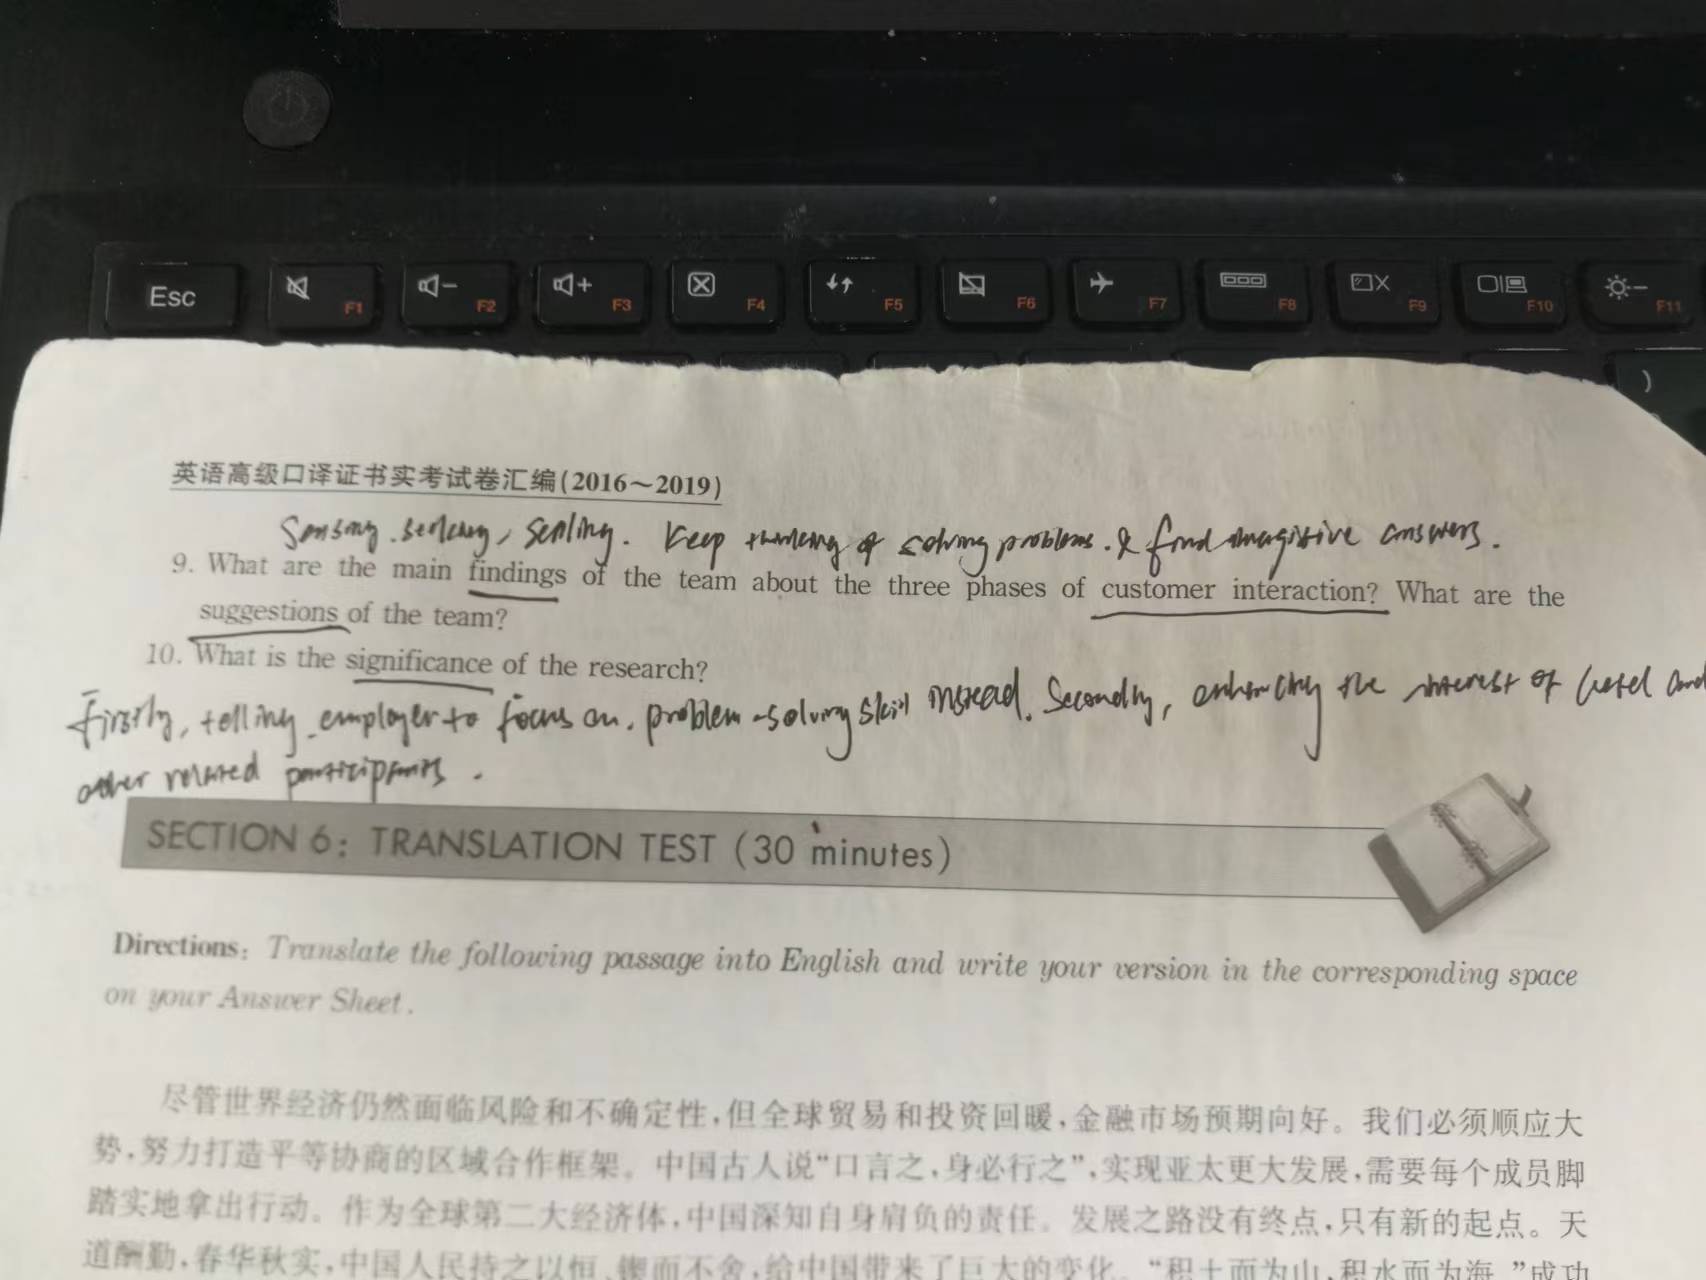 Esc
F1
F2
F3
F4
F5
F6
F7
F8
F9
F10
F11
)
英语高级口译证书实考试卷汇编(2016～2019)
Sensing. seeking, sealing. Keep thinking of solving problems. & find answers.
9. What are the main findings of the team about the three phases of customer interaction? What are the
suggestions of the team?
10. What is the significance of the research?
Firstly, telling employer to focus on problem-solving skill instead. Secondly, the interest of and
other related participants.
SECTION 6: TRANSLATION TEST (30 minutes)
Directions: Translate the following passage into English and write your version in the corresponding space
on your Answer Sheet.
尽管世界经济仍然面临风险和不确定性,但全球贸易和投资回暖,金融市场预期向好。我们必须顺应大
势,努力打造平等协商的区域合作框架。中国古人说“口言之,身必行之”,实现亚太更大发展,需要每个成员脚
踏实地拿出行动。作为全球第二大经济体,中国深知自身肩负的责任。发展之路没有终点,只有新的起点。天
道酬勤,春华秋实,中国人民持之以恒、锲而不舍,给中国带来了巨大的变化。“积土而为山,积水而为海。”成功